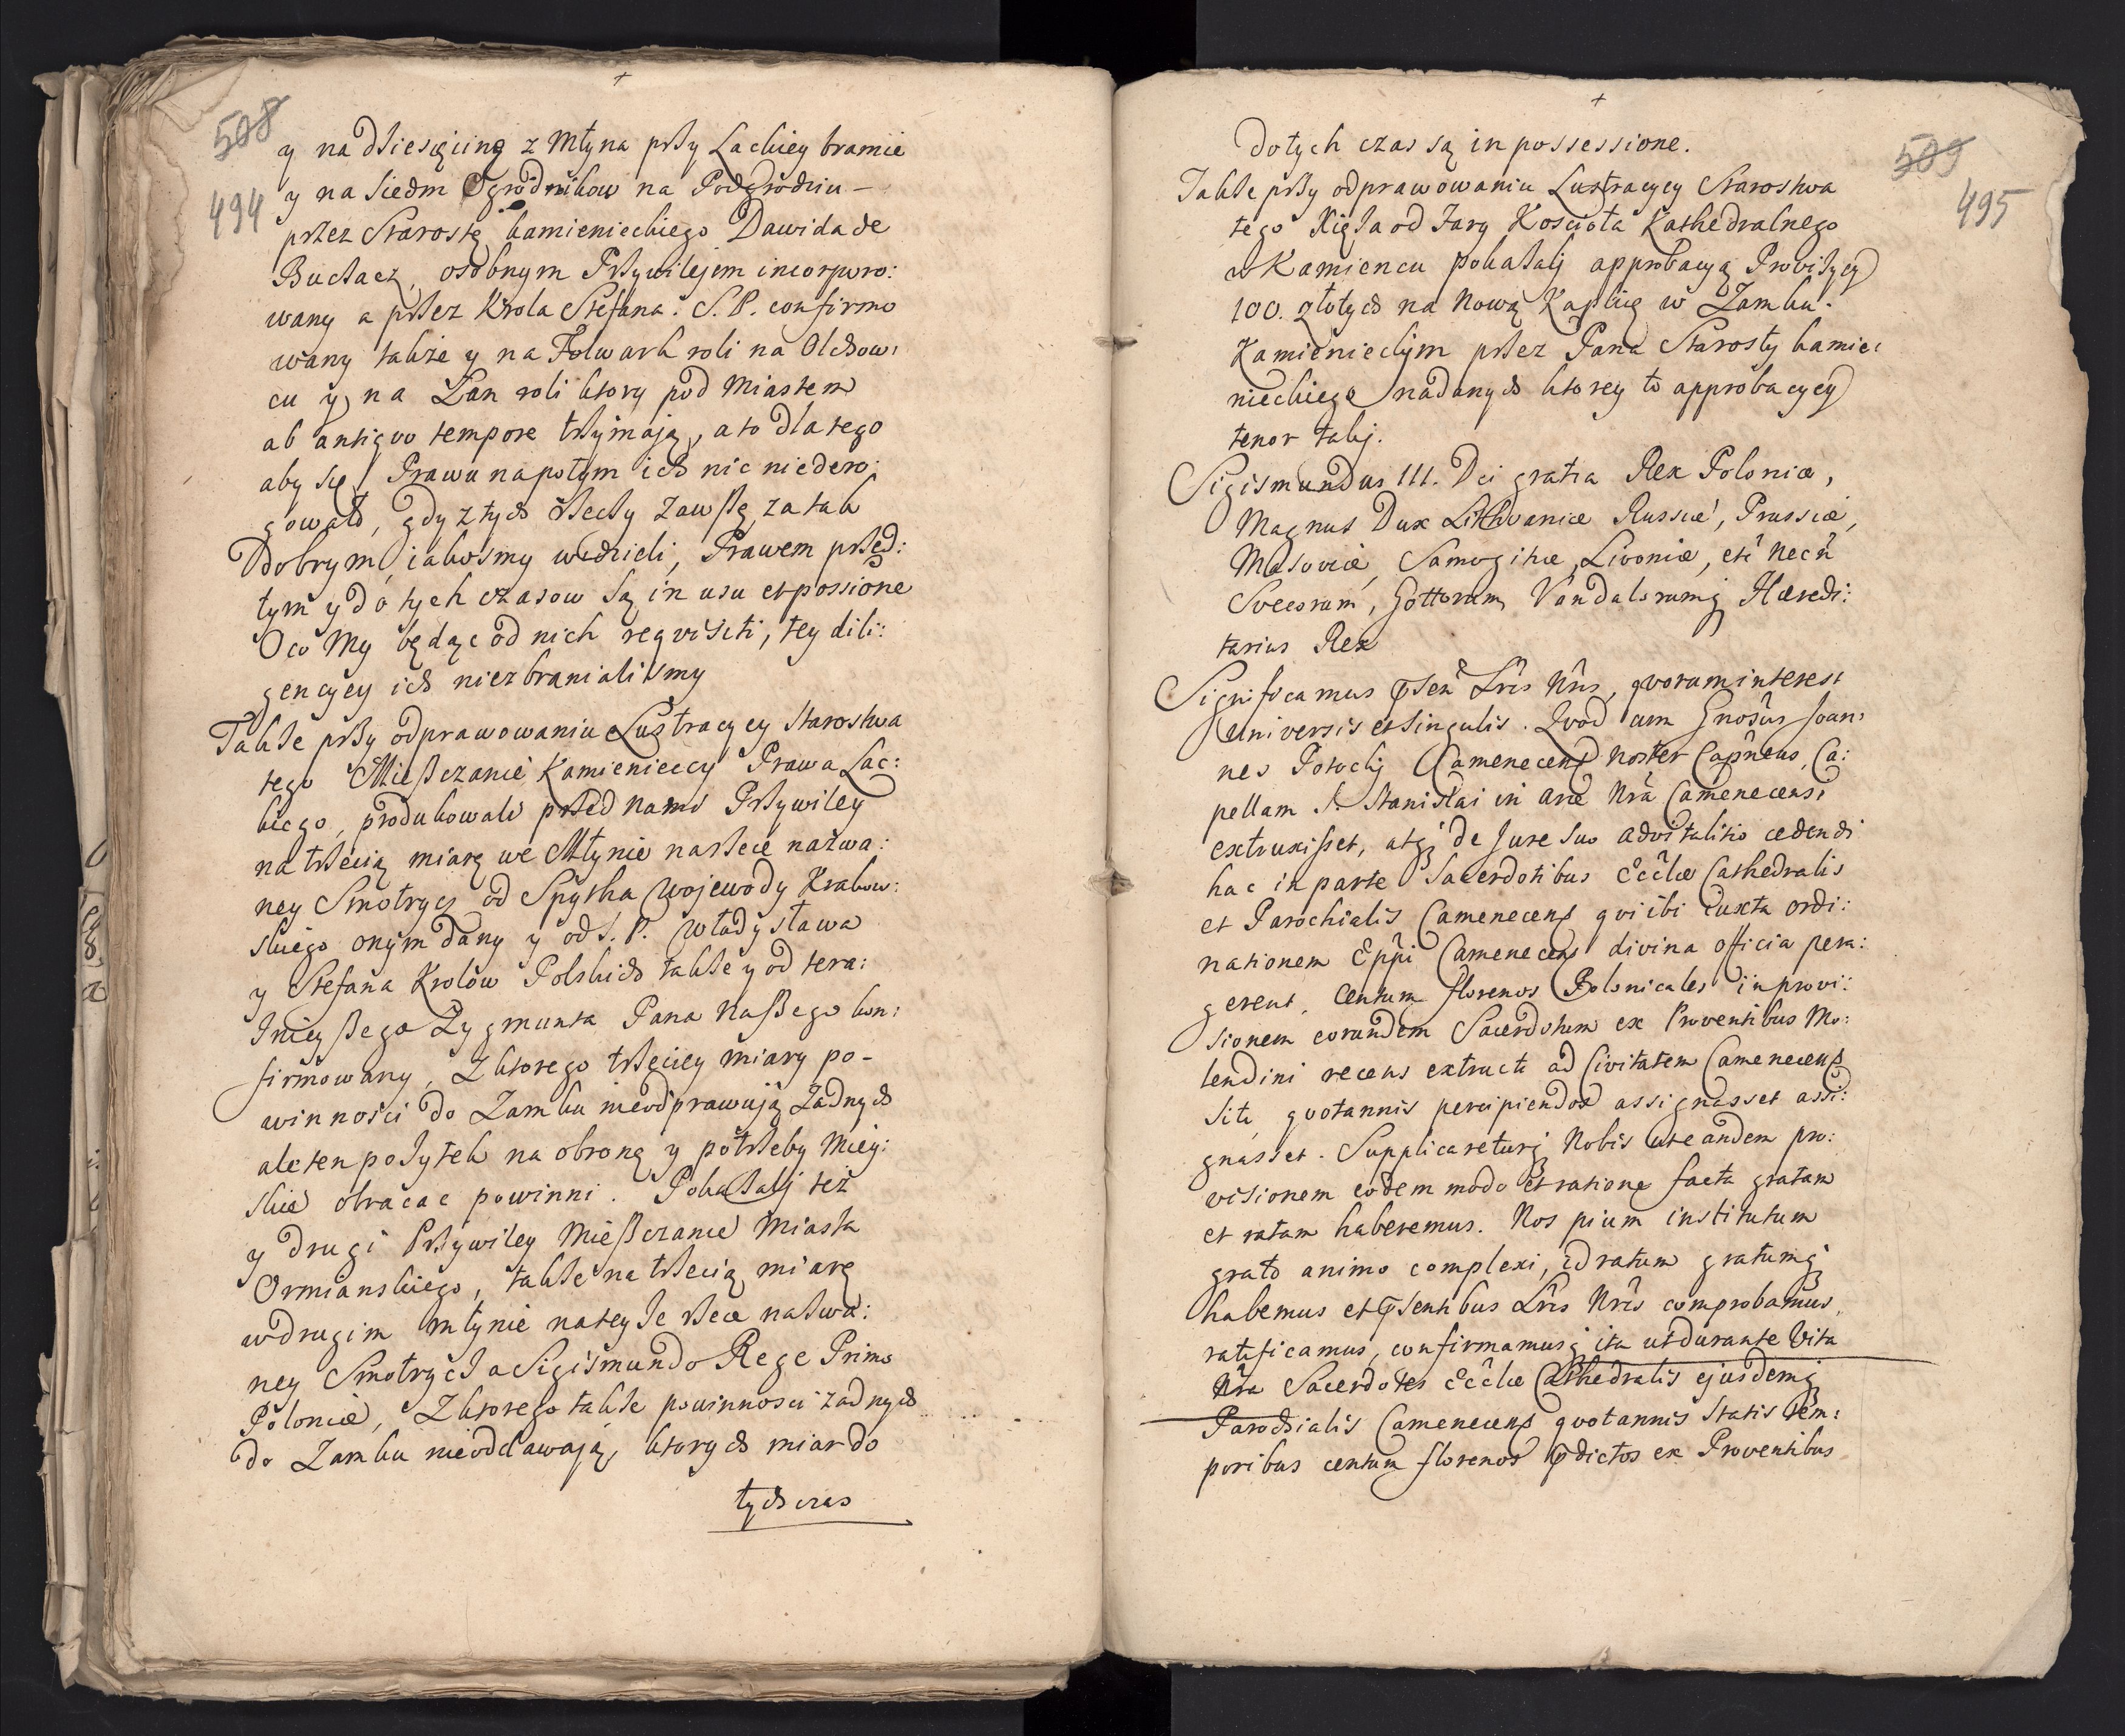 +
508
494
y na dźiesięcinę z Młyna przy Lackiey bramie
y na siedm Ogrodnikow na Podgrodziu –
przez Starostę kamienieckiego Dawida de
Buczacz, osobnym Przywilejem incorporo:
wany a przez Krola Stefana. S. P. confirmo
wany także y na Folwark roli na Olchow:
cu y na Łan roli ktory pod Miastem
ab antiqvo tempore trzymają, a to dla tego
aby się Prawu napotym ich nic niedero:
gowało, gdy z tych rzeczy zawsze za tak
dobrym, iakosmy widzieli, Prawem przed:
tym y do tych czasow są in usu et possione
O co My będąc od nich reqvisiti, tey dili:
gencyey ich niezbranialismy
Także przy odprawowaniu Lustracyey Starostwa
tego Mieszczanie Kamienieccy Prawa Lac:
kiego, produkowali przed nami Przywiley
na trzecią miarę we Młynie na rzece nazwa:
ney Smotrycz od Spytka Wojewody Krakow:
skiego onym dany y od S. P. Władysława
y Stefana Krolow Polskich także y od tera:
znieyszego Zygmunta Pana naszego kon:
firmowany, z ktorego trzeciey miary po-
winności do Zamku nieodprawują żadnych
ale ten pożytek na obronę y potrzeby Miey:
skie obracac powinni. Pokazalj też
y drugi Przywiley Mieszczanie Miasta
Ormianskiego, także na trzecią miarę
w drugim młynie na teyże rzece nazwa:
ney Smotrycz a Sigismundo Rege Primo
Poloniæ, z ktorego także powinnosci żadnych
do Zamku nieoddawają, ktorych miar do
tych czas
+
509
495
do tych czas są in possessione.
Także przy odprawowaniu Lustracyey Starostwa
tego Xięża od Fary Koscioła Kathedralnego
w Kamiencu pokazalj approbacyą Prowizyey
100. złotych na Nową Kaplicę w Zamku
Kamienieckim przez Pana Starostę kamie:
nieckiego nadanych ktorey to approbacyey
tenor takj.
Sigismundus III. Dei gratia Rex Poloniæ,
Magnus Dux Lithvaniæ Russiæ, Prussiæ,
Masoviæ, Samogitiæ, Livoniæ, etc̃ necñ
Svecorum, Gottorum, Vandalorumq̨ Hæredi:
tarius Rex
Significamus p̃sen̄ Lris̃ Nris̃, qvorum interest
Universis et singulis. Qvod cum Gnosus̃ Joan:
nes Potockj Camenecens̃ noster Capñeus, Ca:
pellam S. Stanislai in arce Nrã Camenecensi
extruxisset, atq̨ de Jure suo advitalitio cedendi
hac in parte Sacerdotibus Eccłæ Cathedralis
et Parochialis Camenecens̃ qvi ibi iuxta ordi:
nationem Epp̃i Camenecens̃ divina officia pera:
gerent, Centum florenos Polonicales in provi:
sionem eorundem Sacerdotum ex Proventibus Mo:
lendini recens extructi ad Civitatem Camenecens̃
siti, qvotannis percipiendos assignasset assi:
gnasset. Supplicareturq̨ Nobis ut eandem pro:
visionem eodem modo et ratione facta gratam
et ratam haberemus. Nos pium institutum
grato animo complexi, id ratum gratumq̨
habemus et p̃sentibus Lris̃ Nris̃ comprobamus,
ratificamus, confirmamusq̨ ita ut durante Vita
Nrã Sacerdotes Eccłæ Cathedralis ejusdemq̨
Parochialis Camenecens̃ qvotannis statis tem:
poribus centum florenos p̃dictos ex Proventibus